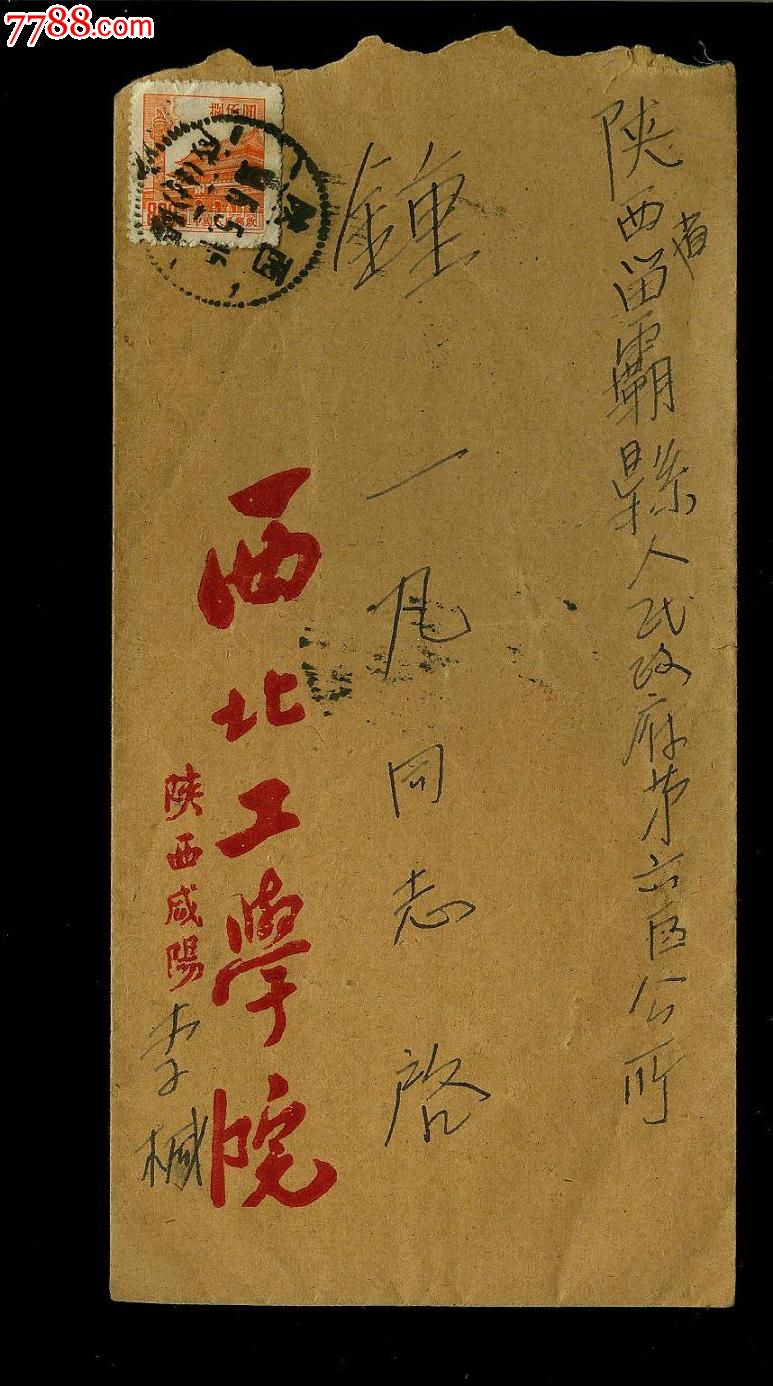 7788.com
陕西省留霸縣人民政府第六区公所
鍾一凡同志 啓
西北工學院
陕西咸陽
李椷
捌佰圓